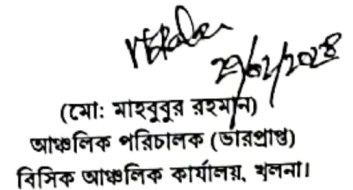 ২৯/০২/২০২৪
(মো: মাহবুবুর রহমান)
আঞ্চলিক পরিচালক (ভারপ্রাপ্ত)
বিসিক আঞ্চলিক কার্যালয়, খুলনা।